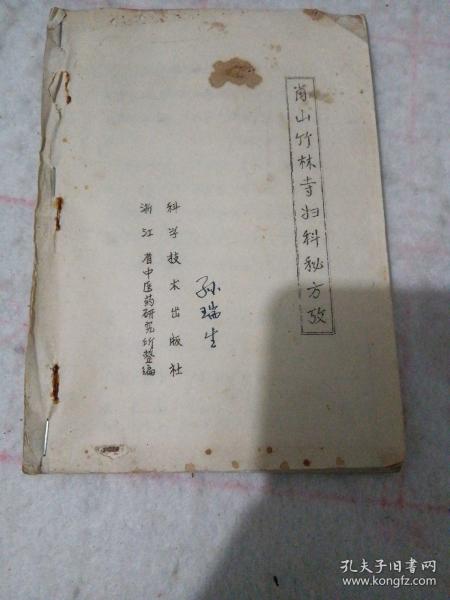 肖山竹林寺妇科秘方考
孙瑞生
科学技术出版社
浙江省中医药研究所整编
孔夫子旧书网
www.kongfz.com